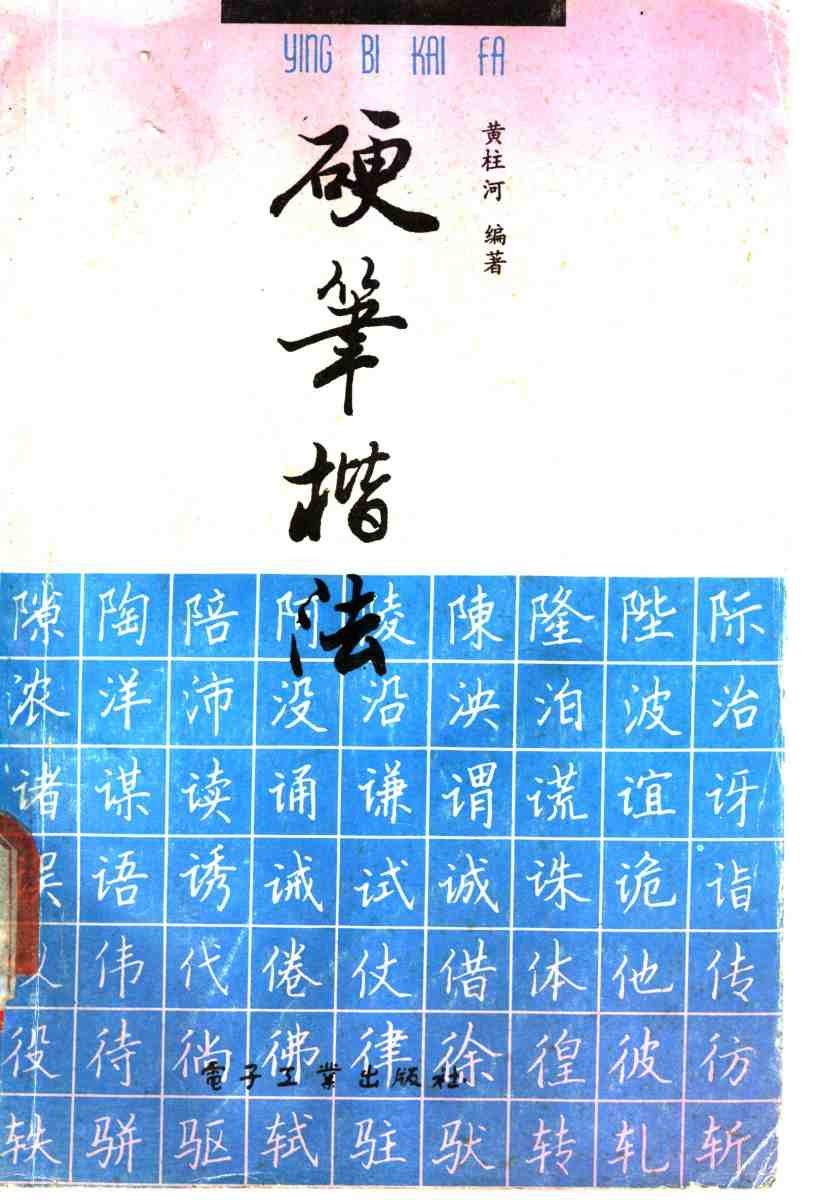 YING BI KAI FA
硬筆楷法
黄柱河 编著
隙陶陪阿陵陳隆陛际
浓洋沛没沿泱泊波治
诸谋读诵谦谓谎谊讶
误语诱诫试诚诛诡诣
伟代倦仗借体他传
役待徜彿律徐徨彼彷
轶骈驱轼驻驮转轧斩
電子工業出版社